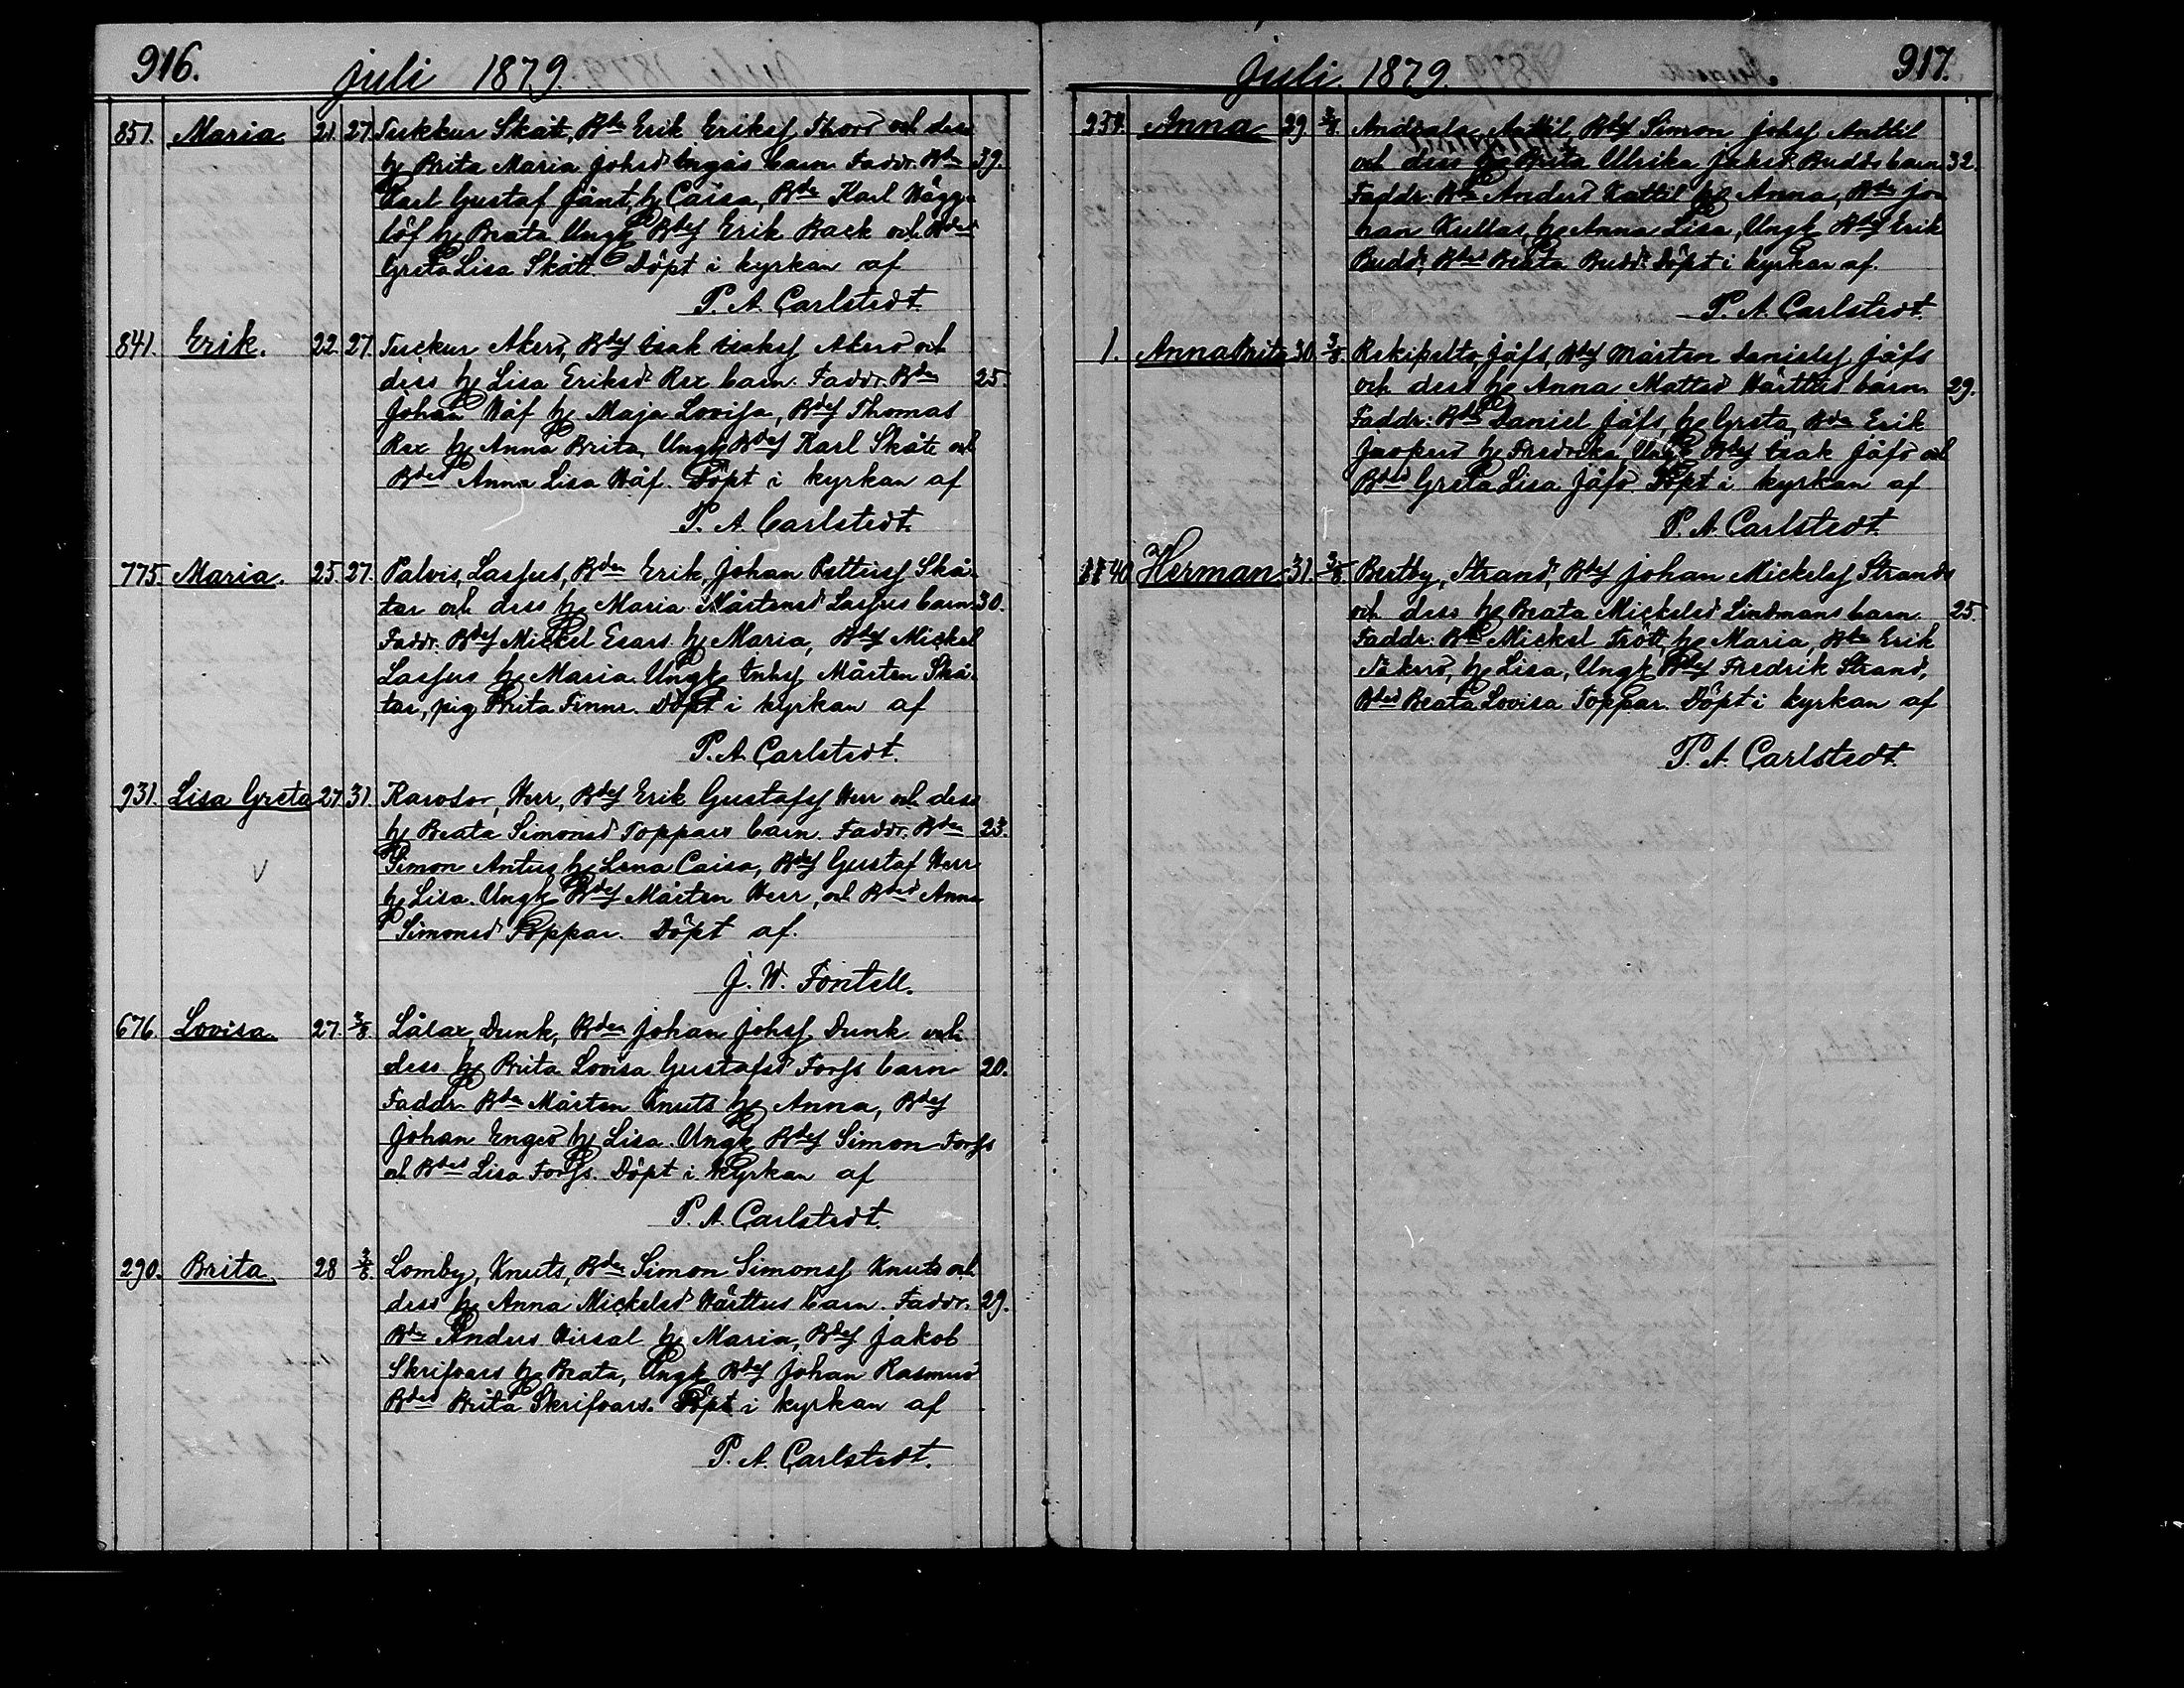 916.
Juli 1879.
851. Maria. 21. 27. Tuckur Skåt, Bdn Erik Eriksf Thors och dess
hu Brita Maria Johsd Ingås barn Faddr. Bdn 39.
Carl Gustaf Jånt, hu Caisa, Bdn Karl Hägg-
löf hu Beata Ungk Bdsf Erik Back och Bdsd
Greta Lisa Skått Döpt i kyrkan af
P. A. Carlstedt.
841. Erik. 22. 27. Tuckur Akers, Bdsf Isak Isaksf Akers och
dess hu Lisa Eriksd Rex barn. Faddr. Bdn 25.
Johan Håf hu Maja Lovisa, Bdsf Thomas
Rex hu Anna Brita, Ungk Bdsf Karl Skåt och
Bdsd Anna Lisa Håf. Döpt i kyrkan af
P. A. Carlstedt.
775. Maria. 25. 27. Palvis, Lassus, Bdn Erik Johan Pettersf Skå-
tar och dess hu Maria Mårtensd Lassus barn. 30.
Faddr. Bdsf Mickel Esars hu Maria, Bdsf Mickel
Lassus hu Maria. Ungk Inhsf Mårten Skå-
tar, pig Brita Finne. Döpt i kyrkan af
P. A. Carlstedt.
931. Lisa Greta 27. 31. Karvsor, Herr, Bdsf Erik Gustafsf Herr och dess
hu Beata Simonsd Toppars barn. Faddr. Bdn 23.
Simon Antus hu Lena Caisa, Bdsf Gustaf Herr
hu Lisa. Ungk Bdsf Mårten Herr, och Bdsd Anna
Simonsd Toppar. Döpt af.
J. W. Fontell.
676. Lovisa. 27. 3/8. Lålax, Dunk, Bdn Johan Johsf Dunk och
dess hu Brita Lovisa Gustafsd Forss barn 20.
Faddr. Bdn Mårten Knuts hu Anna, Bdsf
Johan Engers hu Lisa. Ungk Bdsf Simon Forss
och Bdsd Lisa Forss. Döpt i kyrkan af
P. A. Carlstedt.
290. Brita. 28 3/8. Lomby, Knuts, Bdn Simon Simonsf Knuts och
dess hu Anna Mickelsd Härttus barn. Faddr. 29.
Bdn Anders Hirsal hu Maria, Bdsf Jakob
Skrifvars hu Beata, Ungk Bdsf Johan Rasmus
Bdsd Brita Skrifvars. Döpt i kyrkan af
P. A. Carlstedt.
917.
Juli. 1879.
234. Anna 29 3/8. Andiala, Anttil, Bdsf Simon Johsf Anttil
och dess hu Brita Ulrika Jakсd Budds barn 32.
Faddr: Bdn Anders Kattil hu Anna, Bdn Jo-
han Kullas, hu Anna Lisa, Ungk Bdsf Erik
Budd, Bdsd Beata Budd. Döpt i kyrkan af.
P. A. Carlstedt.
1. Anna Brita 30. 3/8. Rekipelto, Jåfs, Bdsf Mårten Danielsf Jåfs
och dess hu Anna Mattsd Härttus barn. 29.
Faddr: Bdn Daniel Jåfs, hu Greta, Bdn Erik
Jaspers hu Fredrika Ungk Bdsf Isak Jåfs och
Bdsd Greta Lisa Jåfs Döpt i kyrkan af
P. A. Carlstedt
40 Herman. 31. 3/8. Bertby, Strand, Bdsf Johan Mickelsf Strands
och dess hu Beata Mickelsd Lindmans barn. 25.
Faddr: Bdn Mickel Trött, hu Maria, Bdn Erik
Nåkers, hu Lisa, Ungk Bdsf Fredrik Strand,
Bdsd Beata Lovisa Toppar. Döpt i kyrkan af
P. A. Carlstedt.